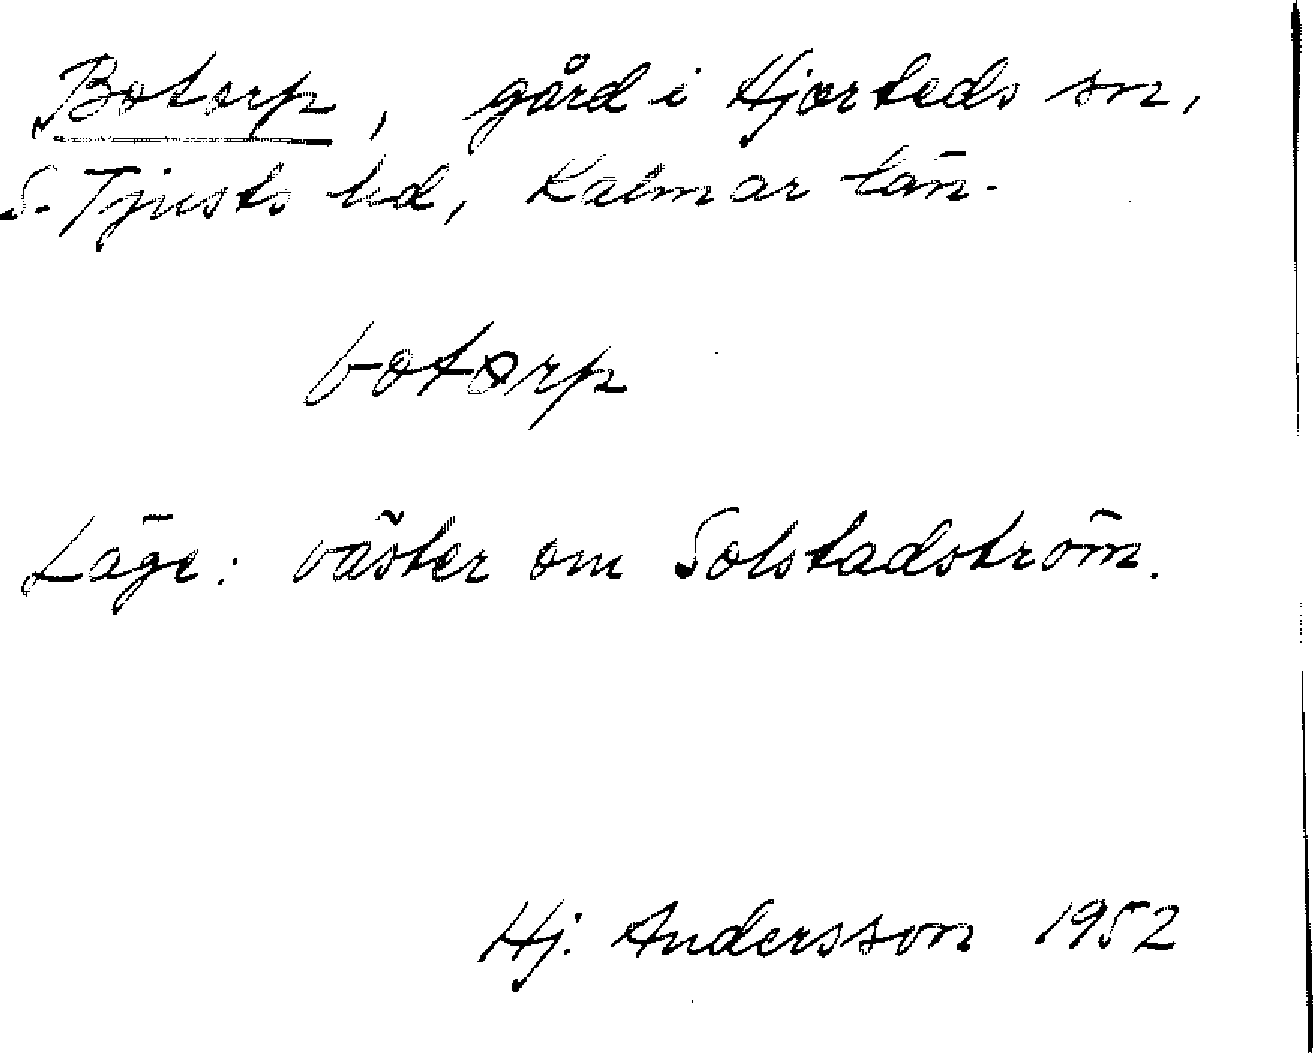 Botorp, gård i Hjorteds sn,
S. Tjusts hd, Kalmar län.
botorp
Läge: väster om Solstadström.
Hj. Andersson 1952